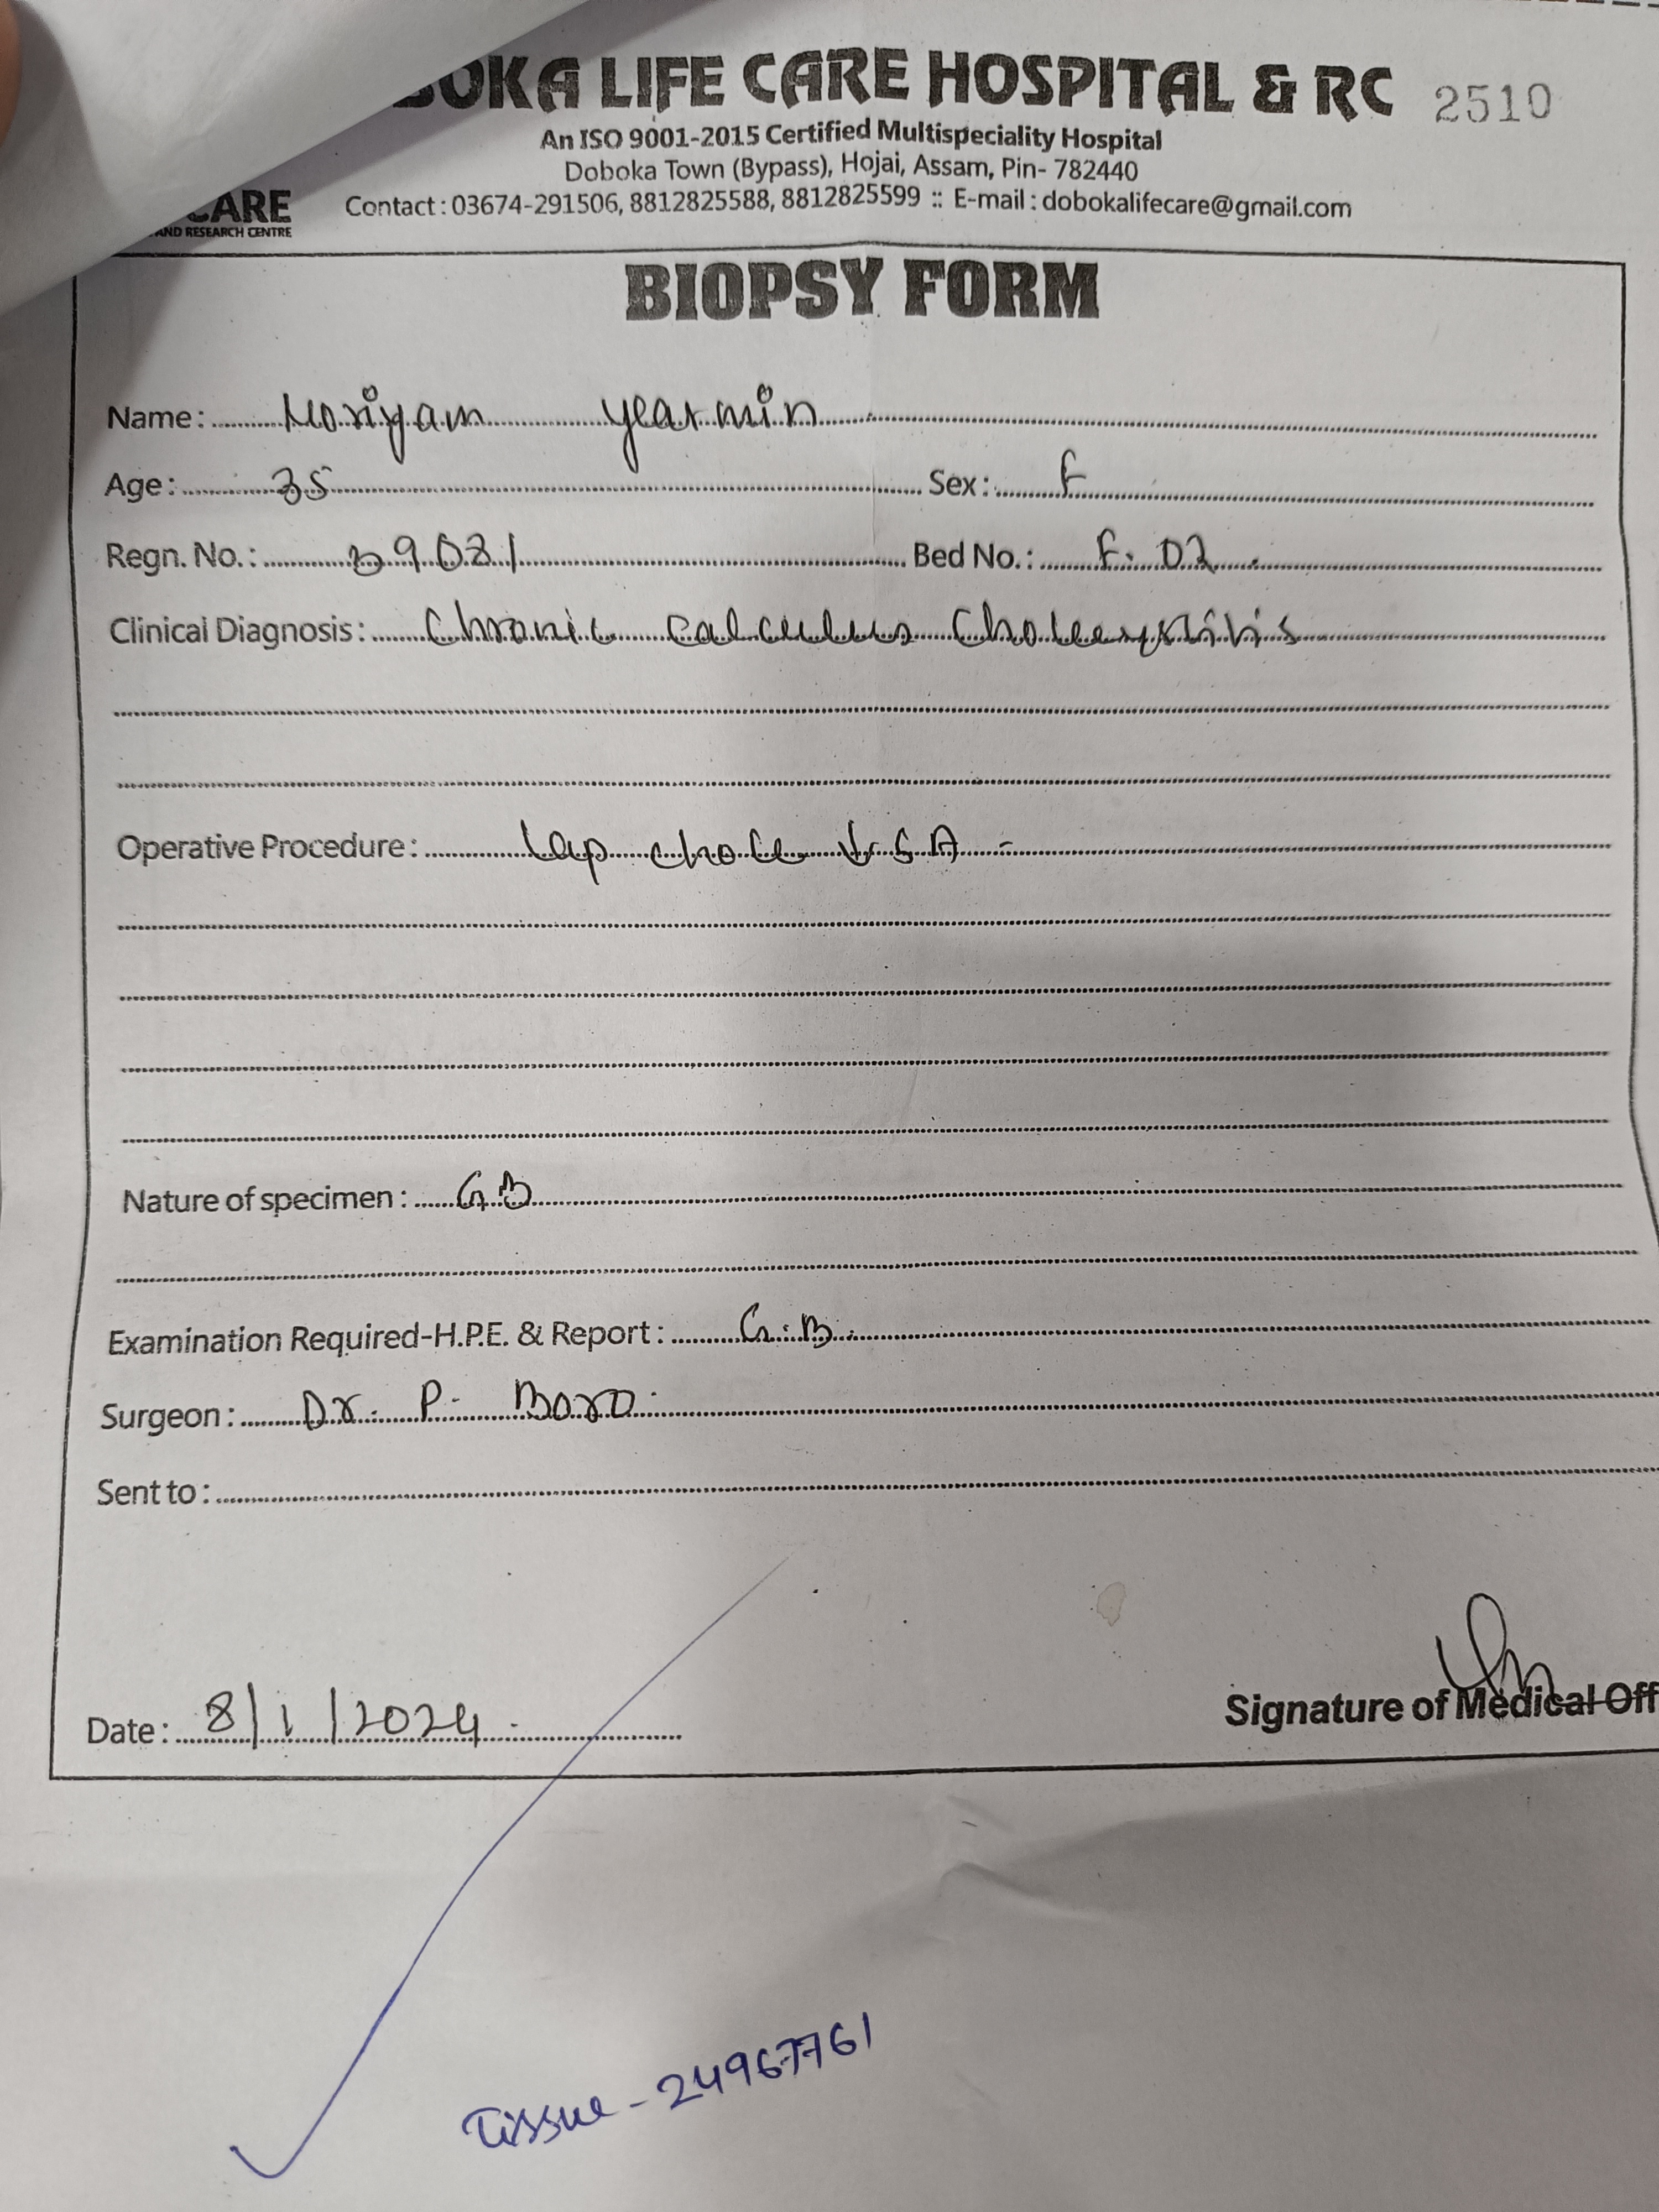 BOKA LIFE CARE HOSPITAL & RC 2510
An ISO 9001-2015 Certified Multispeciality Hospital
Doboka Town (Bypass), Hojai, Assam, Pin- 782440
CARE
AND RESEARCH CENTRE
Contact : 03674-291506, 8812825588, 8812825599 :: E-mail : dobokalifecare@gmail.com
BIOPSY FORM
Name : Moriyam Yearmin
Age : 35 Sex : F
Regn. No. : Bed No. : F. 02
Clinical Diagnosis : Chronic calculus Cholecystitis
Operative Procedure : Lap chole
Nature of specimen : G.B
Examination Required-H.P.E. & Report : G.B.
Surgeon : Dr. P. Boro
Sent to :
Date : 8/1/2024
Signature of Medical Off
Tissue - 24967761